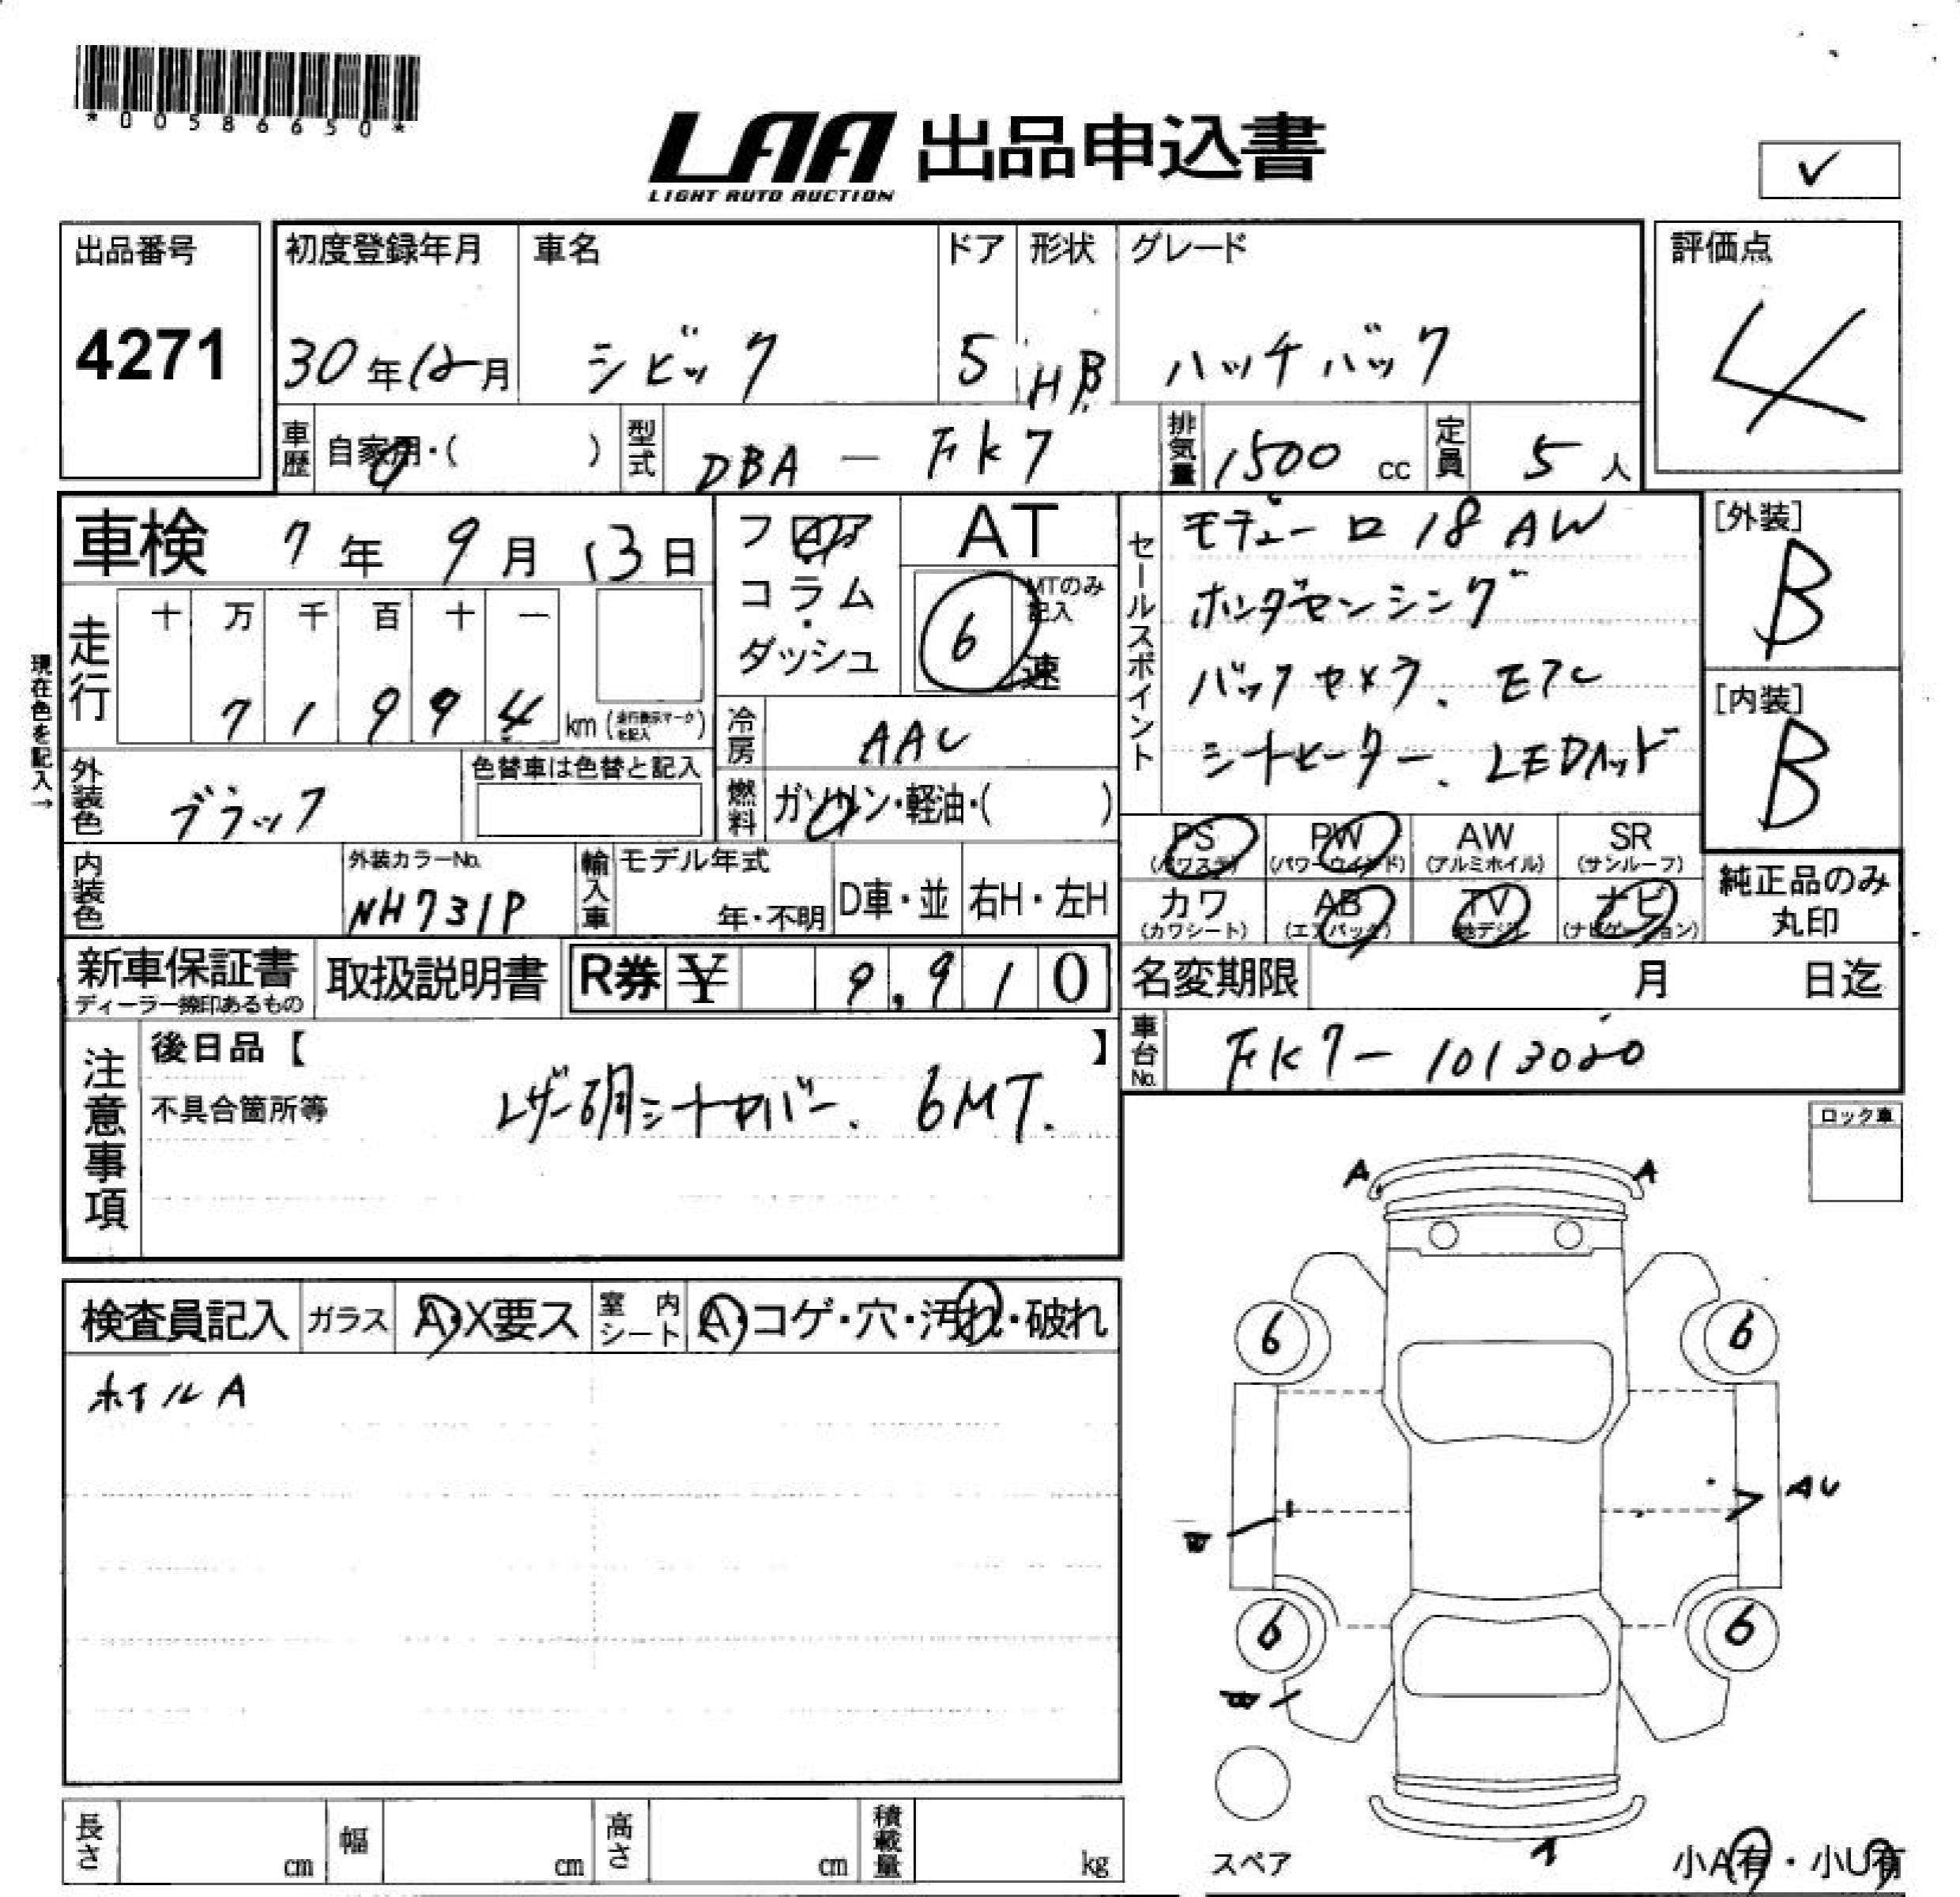 *00586650*
LAA 出品申込書
LIGHT AUTO AUCTION
✓
出品番号
4271
初度登録年月
30年12月
車名
シビック
ドア
5
形状
HB
グレード
ハッチバック
評価点
4
車歴 自家用・( )
型式 DBA - FK7
排気量 1500 cc
定員 5 人
車検 7年9月13日
フロア・コラム・ダッシュ
AT
6 速
MTのみ記入
セールスポイント
モデューロ 18 AW
ホンダセンシング
バックカメラ. ETC
シートヒーター. LEDヘッド
[外装]
B
[内装]
B
現在色を記入→
走行
十 万 千 百 十 一
7 1 9 9 4 km (走行表示マークを記入)
冷房 AAC
燃料 ガソリン・軽油・( )
外装色 ブラック
色替車は色替と記入
内装色
外装カラーNo.
NH731P
輸入車
モデル年式
年・不明
D車・並
右H・左H
PS (パワステ)
PW (パワーウインド)
AW (アルミホイル)
SR (サンルーフ)
カワ (カワシート)
AB (エアバック)
TV (地デジ)
ナビ (ナビゲーション)
純正品のみ
丸印
新車保証書
ディーラー捺印あるもの
取扱説明書
R券 ¥ 9,910
名変期限 月 日迄
車台No. FK7-1013020
注意事項
後日品【 】
不具合箇所等
レザー調シートカバー. 6MT.
ロック車
検査員記入
ガラス A・X要ス
室内シート A・コゲ・穴・汚れ・破れ
ホイルA
A A
6 6
AU
6 6
スペア
1
小A有・小U有
長さ cm
幅 cm
高さ cm
積載量 kg